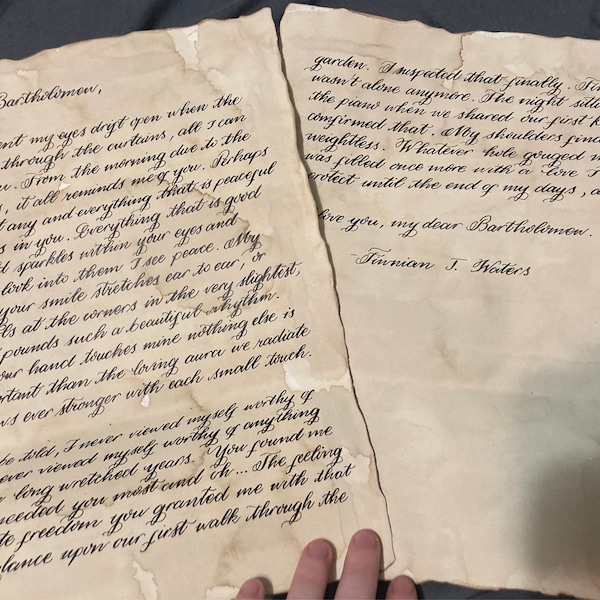 Bartholomew,
my eyes drift open when the
through the curtains, all I can
From the morning dew to the
it all reminds me of you. Perhaps
any and everything that is peaceful
in you. Everything that is good
sparkles within your eyes and
look into them I see peace. My
your smile stretches ear to ear, or
at the corners in the very slightest,
pounds such a beautiful rhythm.
your hand touches mine nothing else is
than the loving aura we radiate
ever stronger with each small touch.
be told, I never viewed myself worthy of
never viewed myself worthy of anything
long wretched years. You found me
needed you most and oh... The feeling
freedom you granted me with that
glance upon our first walk through the
garden. I suspected that finally.
wasn't alone anymore. The night
the piano when we shared our first
confirmed that. My shoulders
weightless. Whatever hole gouged
was filled once more with a love I
protect until the end of my days,
love you, my dear Bartholomew.
-Finnian T. Waters